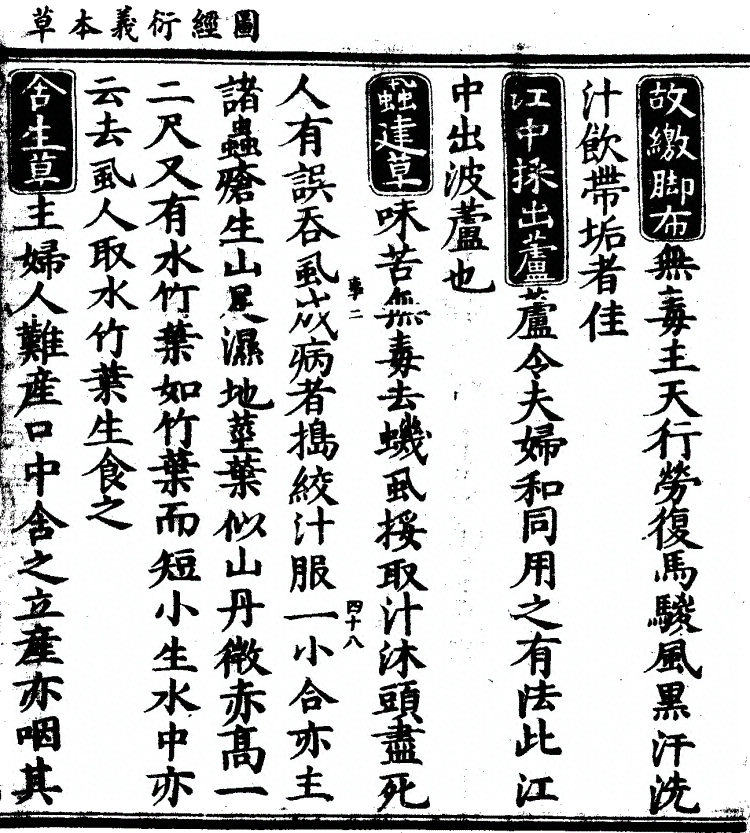 圖經衍義本草
故繳脚布無毒主天行勞復馬駿風黑汗洗
汁飲帶垢者佳
江中採出蘆蘆令夫婦和同用之有法此江
中出波蘆也
虱建草味苦無毒去蟣虱挼取汁沐頭盡死
人有誤吞虱成病者搗絞汁服一小合亦主
諸蟲瘡生山足濕地莖葉似山丹微赤高一
二尺又有水竹葉如竹葉而短小生水中亦
云去虱人取水竹葉生食之
含生草主婦人難産口中含之立産亦咽其
四十八